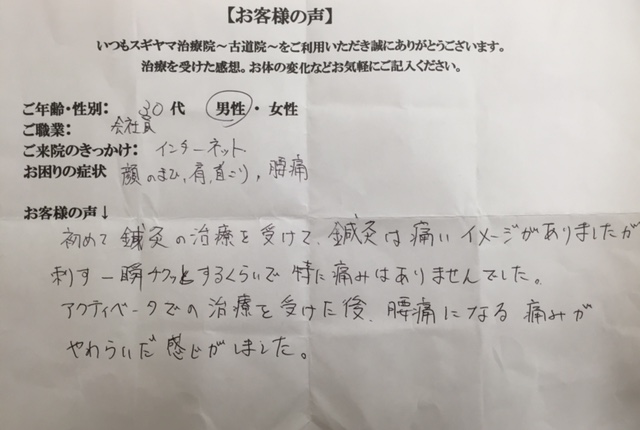 【お客様の声】
いつもスギヤマ治療院～古道院～をご利用いただき誠にありがとうございます。
治療を受けた感想。お体の変化などお気軽にご記入ください。
ご年齢・性別： 30代 男性・女性
ご職業： 会社員
ご来院のきっかけ： インターネット
お困りの症状 顔のまひ, 肩, 首こり, 腰痛
お客様の声↓
初めて鍼灸の治療を受けて、鍼灸は痛いイメージがありましたが
刺す一瞬チクッとするくらいで特に痛みはありませんでした。
アクティベータでの治療を受けた後、腰痛になる痛みが
やわらいだ感じがしました。